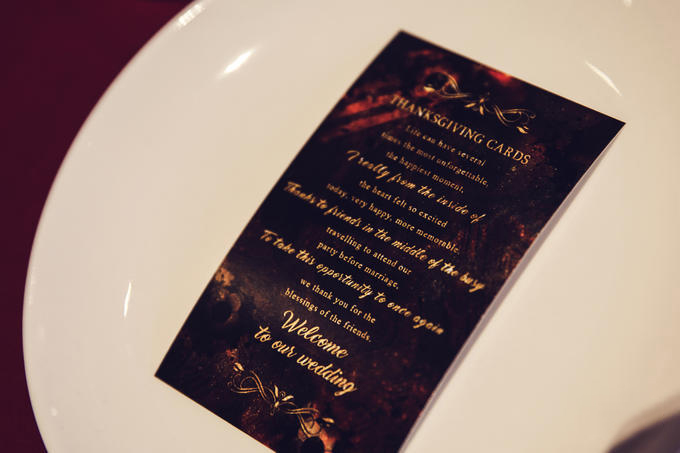 THANKSGIVING CARDS
Life can have several
times the most unforgettable,
the happiest moment,
Frostly from the inside of
the heart felt so excited
today, very happy, more memorable.
Thanks to friends in the middle of the busy
travelling to attend our
party before marriage,
To take this opportunity to once again
we thank you for the
blessings of the friends.
Welcome
to our wedding